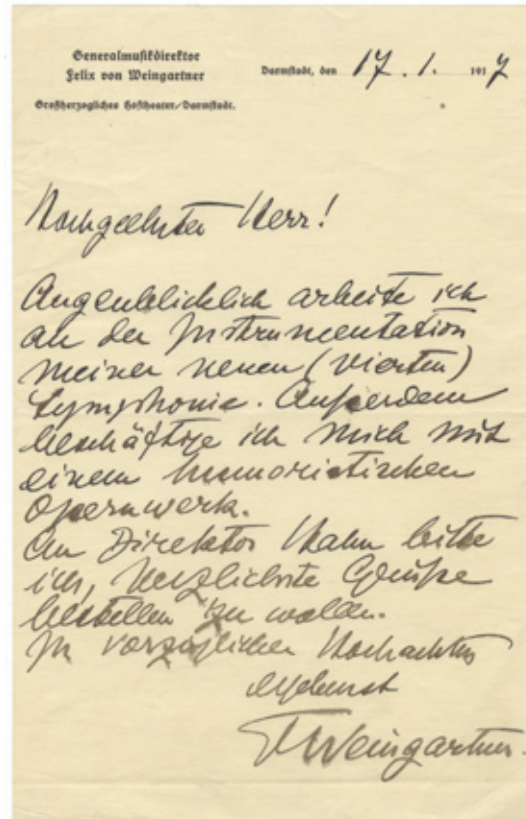 Generalmusikdirektor
Felix von Weingartner
Großherzogliches Hoftheater/Darmstadt.
Darmstadt, den 17. 1. 1917
Hochgeehrter Herr!
Augenblicklich arbeite ich
an der Instrumentation
meiner neuen (vierten)
Symphonie. Außerdem
beschäftige ich mich mit
einem humoristischen
Opernwerk.
An Direktor Hahn bitte
ich, herzlichste Grüße
bestellen zu wollen.
In vorzüglicher Hochachtung
ergebenst
FWeingartner.